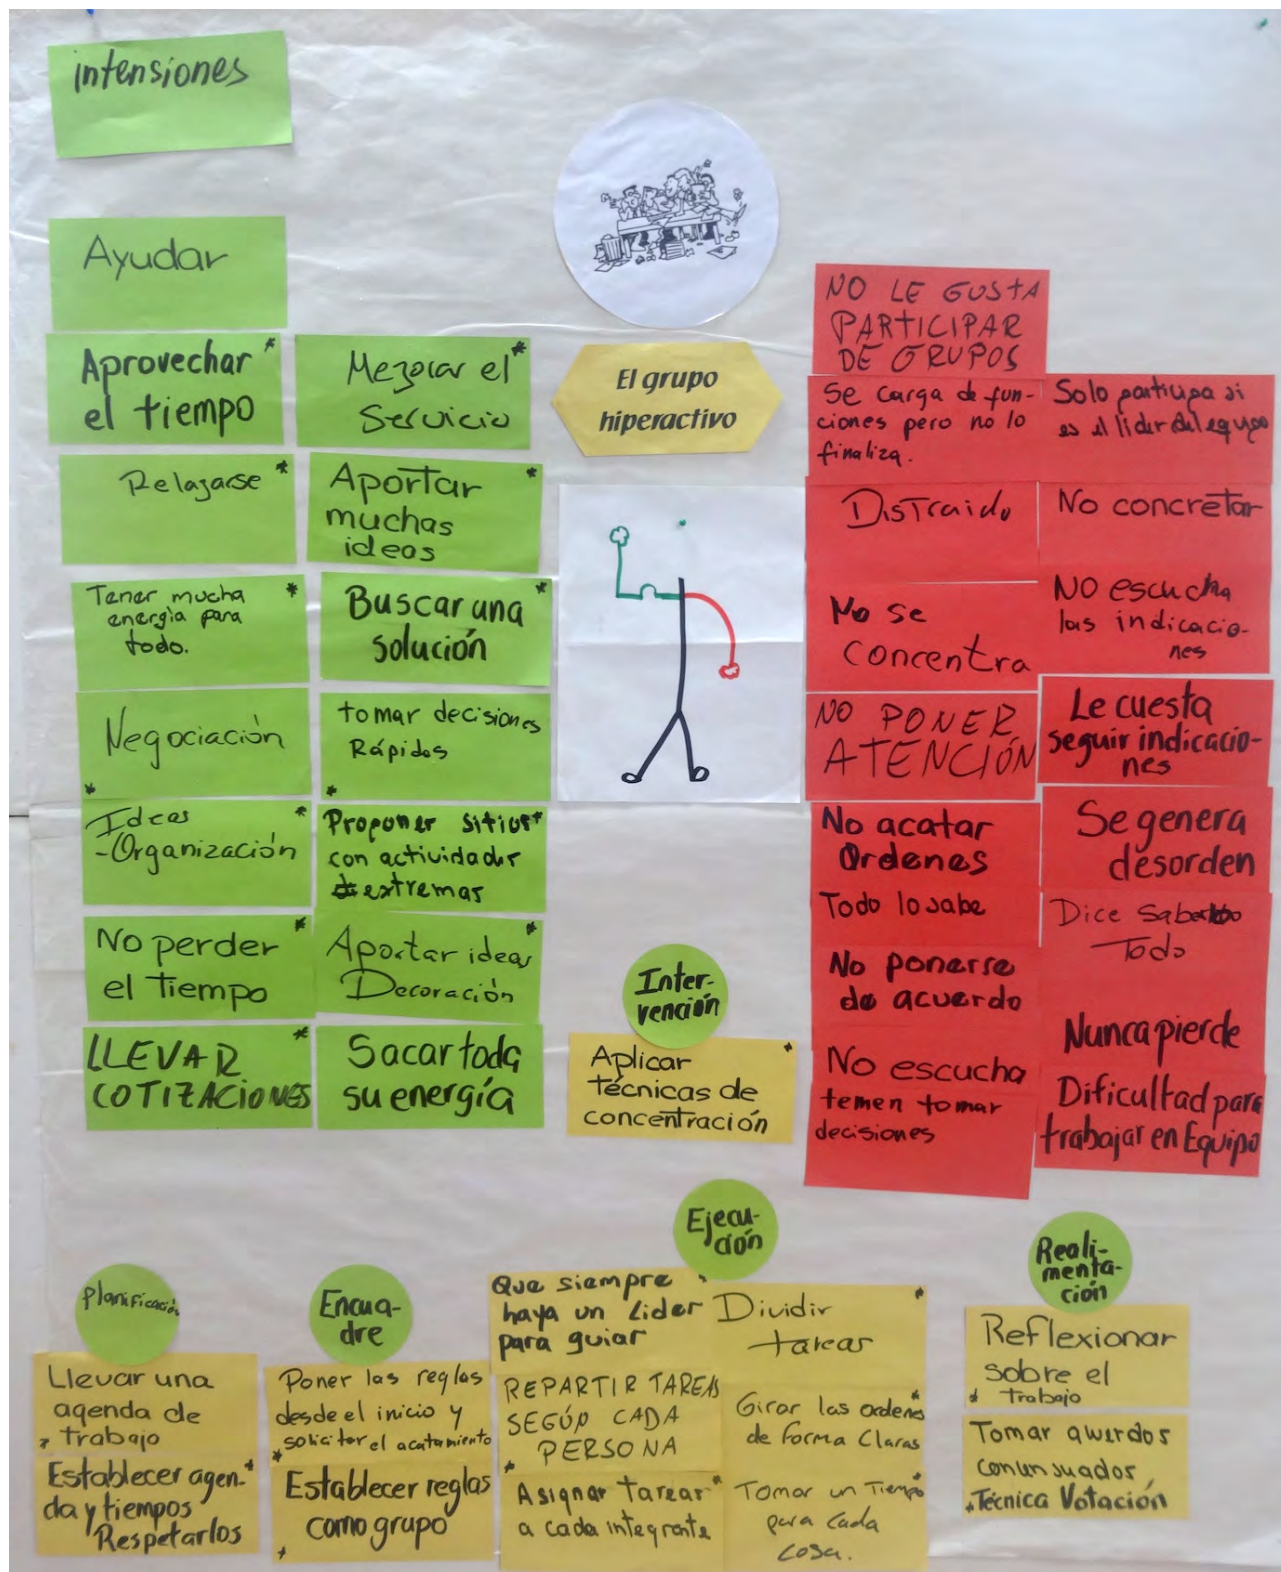 intensiones
Ayudar
Aprovechar
el tiempo
Relajarse
Tener mucha
energía para
todo.
Negociación
Ideas
-Organización
No perder
el tiempo
LLEVAR
COTIZACIONES
Mejorar el
Servicio
Aportar
muchas
ideas
Buscar una
solución
tomar decisiones
Rápidas
Proponer sitios
con actividades
extremas
Aportar ideas
Decoración
Sacar toda
su energía
El grupo
hiperactivo
NO LE GUSTA
PARTICIPAR
DE GRUPOS
Se carga de fun-
ciones pero no lo
finaliza.
Distraido
No se
concentra
NO PONER
ATENCIÓN
No acatar
Ordenes
Todo lo sabe
No ponerse
de acuerdo
No escucha
temen tomar
decisiones
Solo participa si
es el lider del equipo
No concretar
NO escucha
las indicacio-
nes
Le cuesta
seguir indicacio-
nes
Se genera
desorden
Dice saberlo
Todo
Nunca pierde
Dificultad para
trabajar en Equipo
Inter-
vención
Aplicar
técnicas de
concentración
Planificación
Llevar una
agenda de
trabajo
Establecer agen-
da y tiempos
Respetarlos
Encua-
dre
Poner las reglas
desde el inicio y
solicitar el acatamiento
Establecer reglas
como grupo
Ejecu-
ción
Que siempre
haya un Lider
para guiar
REPARTIR TAREAS
SEGÚN CADA
PERSONA
Asignar tareas
a cada integrante
Dividir
tareas
Girar las ordenes
de forma Claras
Tomar un Tiempo
para cada
cosa.
Reali-
menta-
ción
Reflexionar
sobre el
trabajo
Tomar acuerdos
consensuados
Técnica Votación